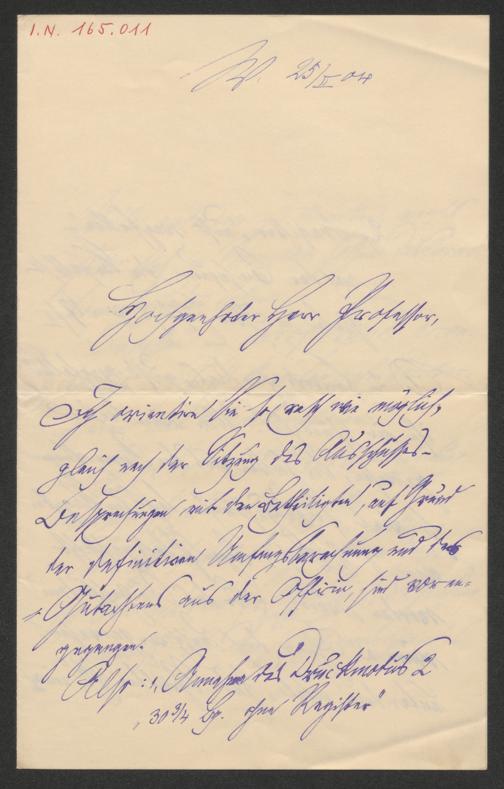 I.N. 165.011
W. 25/V 04
Hochgeehrter Herr Professor,
Ich orientire Sie so rasch wie möglich,
gleich nach der Sitzung des Ausschusses –
Besprechungen mit den Betheiligten, auf Grund
der definitiven Umfangsberechnung und des
Gutachtens aus der Officin, sind voran-
gegangen.
Also: 1, Annahme des Druckmodus 2
„30 3/4 Bg. ohne Register"